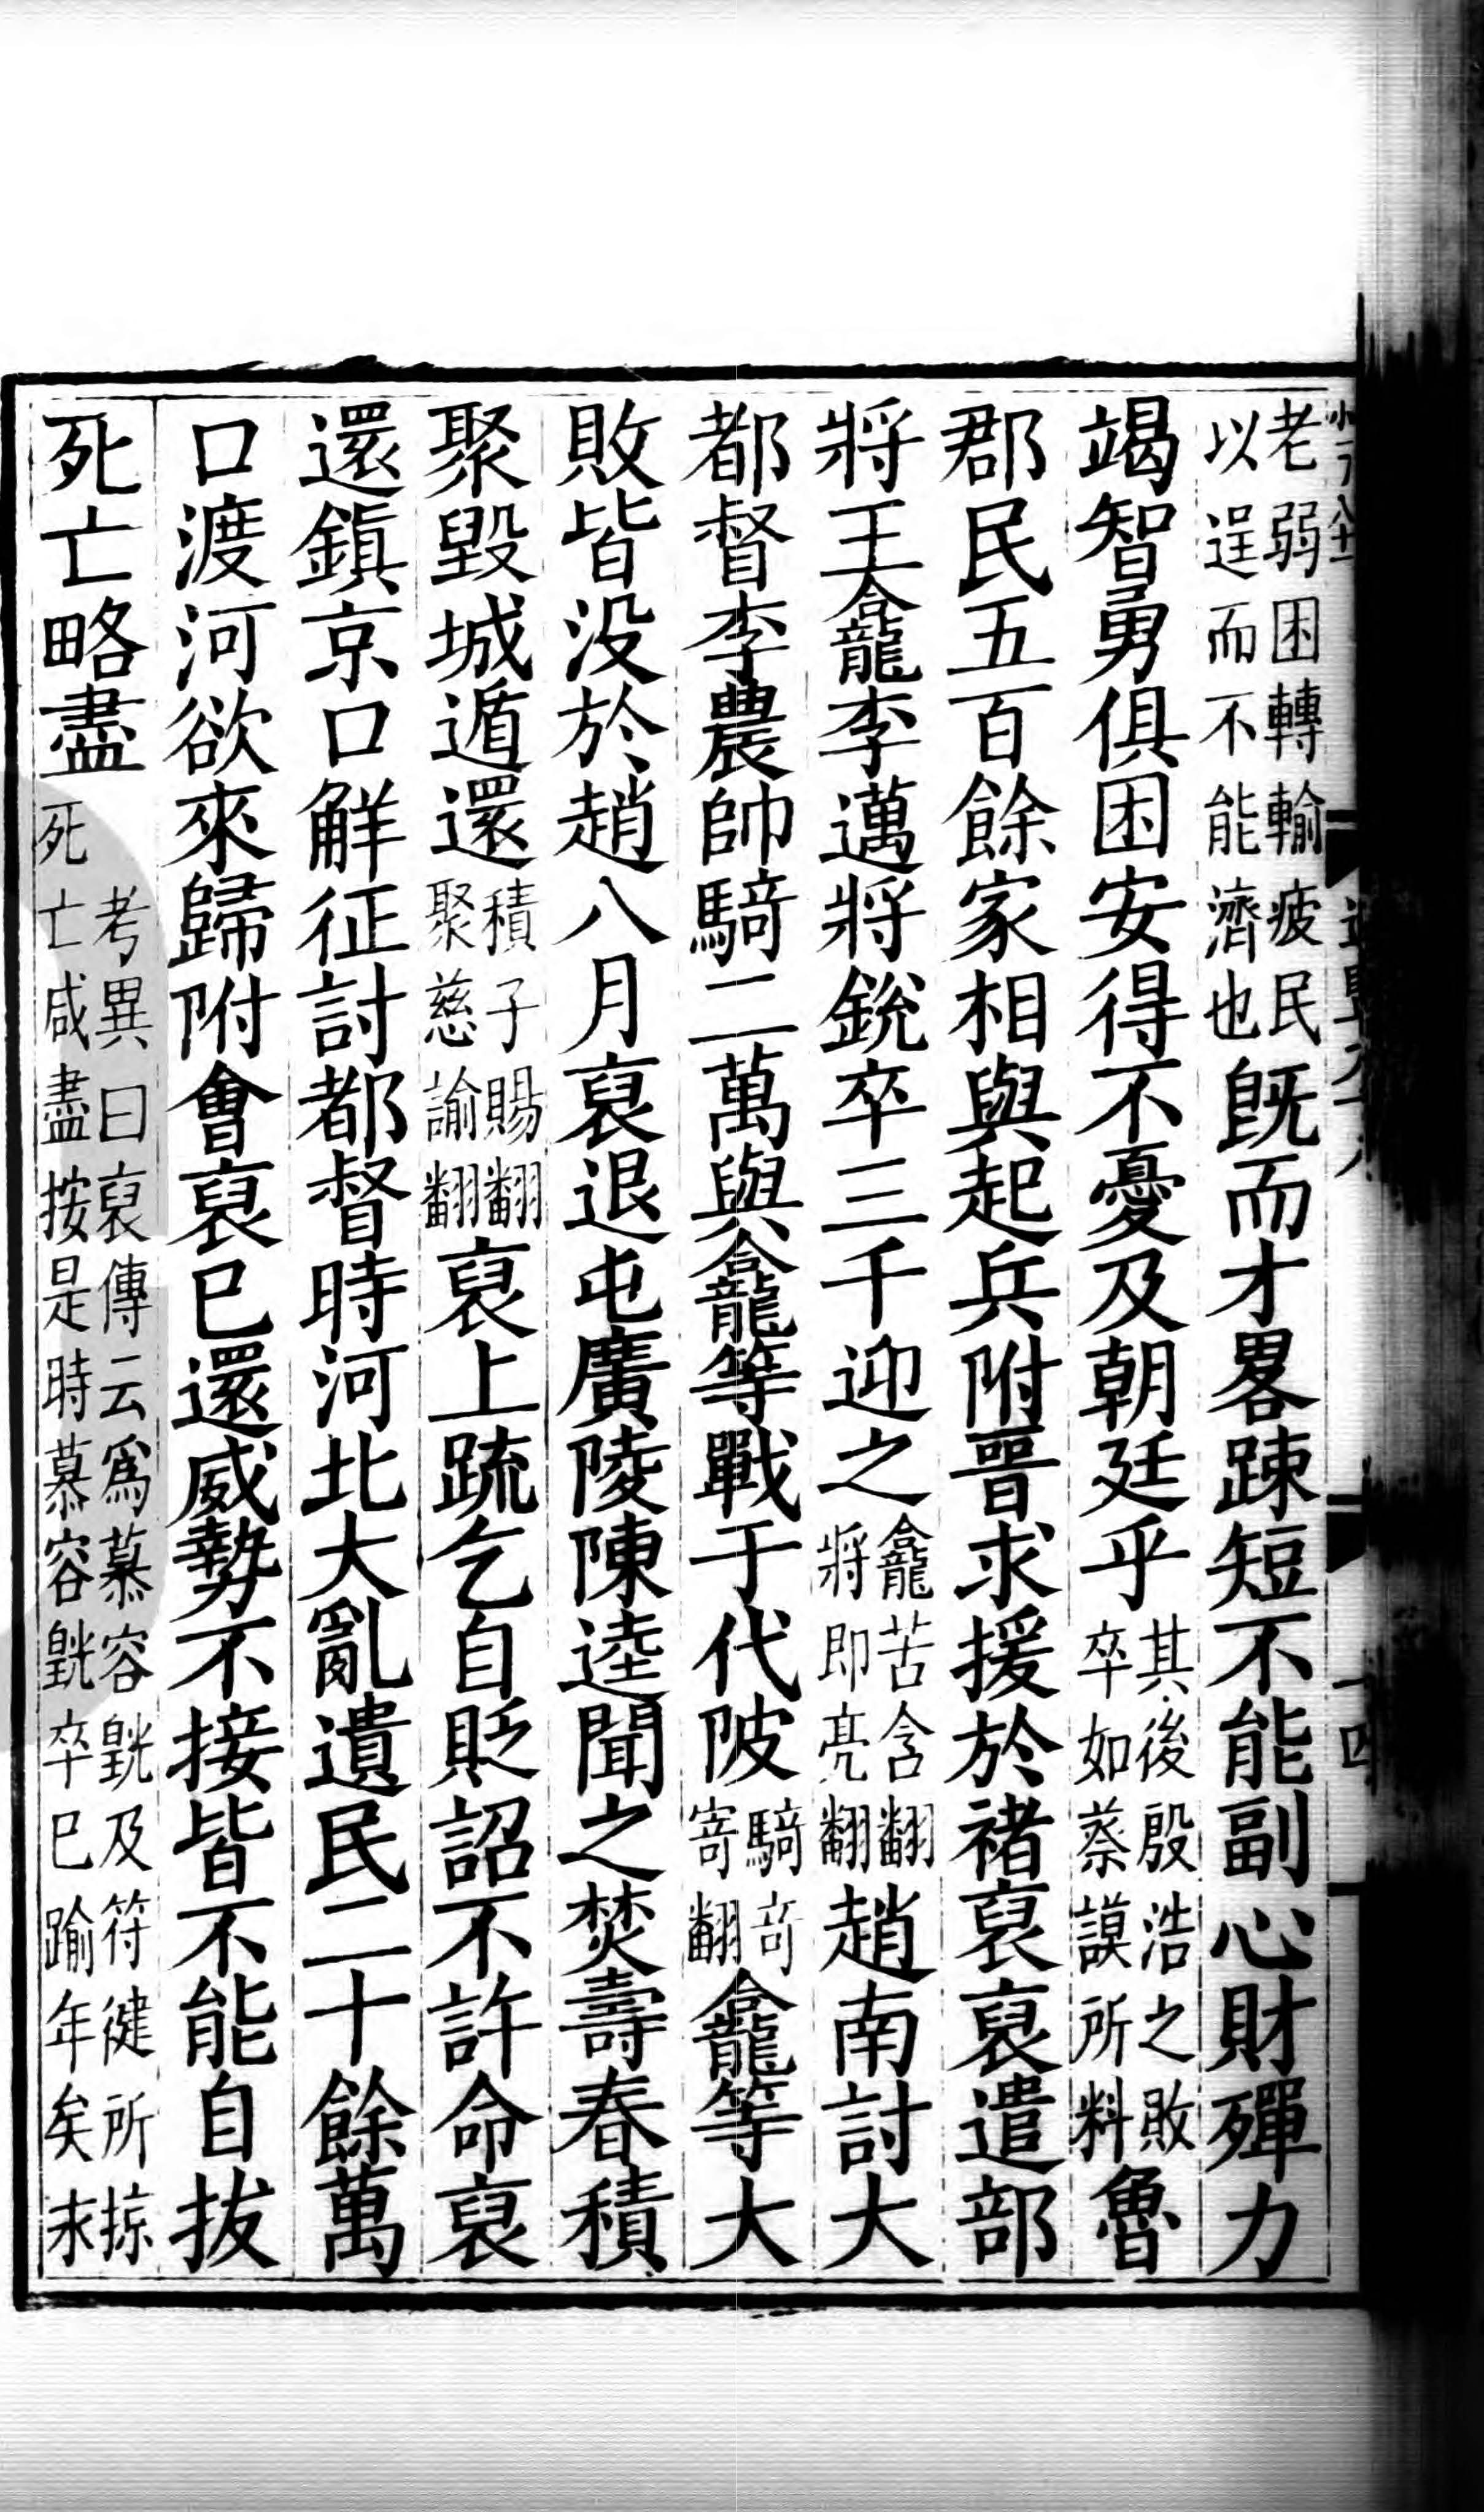 老弱困轉輸疲民以逞而不能濟也旣而才畧踈短不能副心財殫力
竭智勇俱困安得不憂及朝廷乎其後殷浩之敗卒如蔡謨所料魯
郡民五百餘家相與起兵附晉求援於褚裒裒遣部
將王龕李邁將銳卒三千迎之龕苦含翻將即亮翻趙南討大
都督李農帥騎二萬與龕等戰于代陂騎奇寄翻龕等大
敗皆没於趙八月裒退屯廣陵陳逵聞之焚壽春積
聚毀城遁還積子賜翻聚慈諭翻裒上疏乞自貶詔不許命裒
還鎮京口解征討都督時河北大亂遺民二十餘萬
口渡河欲來歸附會裒已還威勢不接皆不能自拔
死亡略盡考異曰裒傳云爲慕容皝及符健所掠死亡咸盡按是時慕容皝卒已踰年矣末